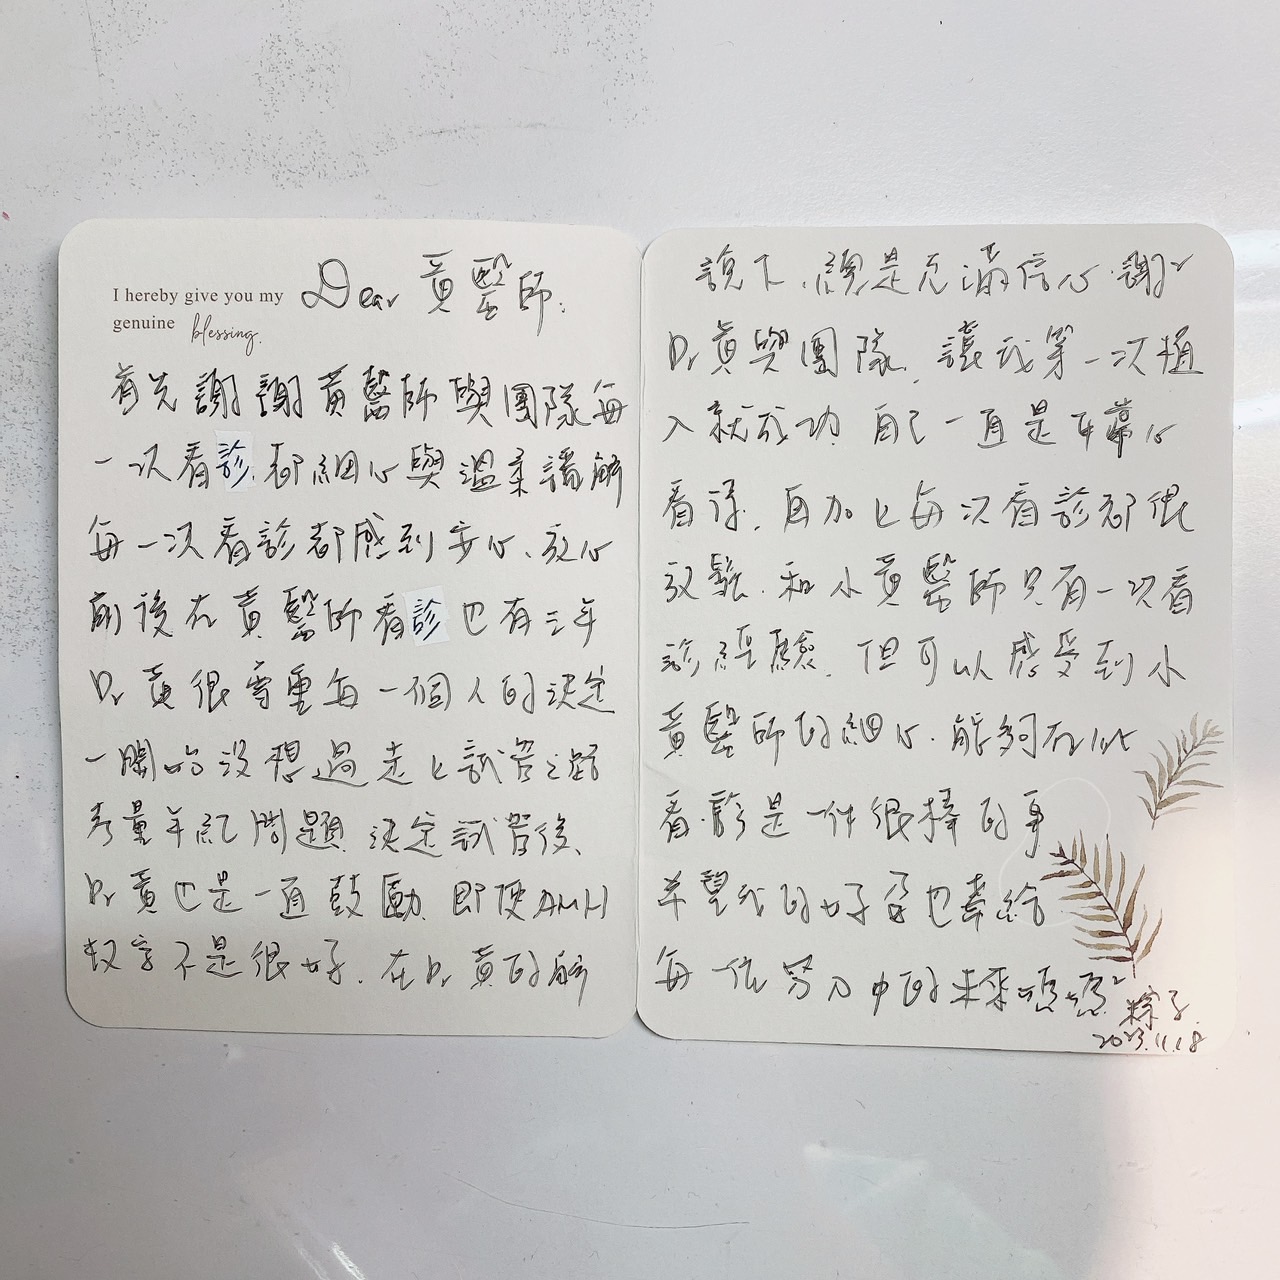 I hereby give you my
genuine blessing.
Dear 黃醫師:
首先謝謝黃醫師與團隊每
一次看診,都細心與溫柔講解
每一次看診都感到安心、放心
前後在黃醫師看診也有三年
Dr 黃很尊重每一個人的決定
一開始沒想過走上試管之路
考量年紀問題,決定試管後、
Dr 黃也是一直鼓勵,即使AMH
數字不是很好,在Dr 黃的解
說下,總是充滿信心,謝²
Dr 黃與團隊,讓我第一次植
入就成功,自己一直是平常心
看待,再加上每次看診都很
放鬆,和小黃醫師只有一次看
診經驗,但可以感受到小
黃醫師的細心,能夠在此
看診是一件很棒的事
希望我的好孕也牽給
每一位努力中的未來媽媽²
粽子.
2023.11.18